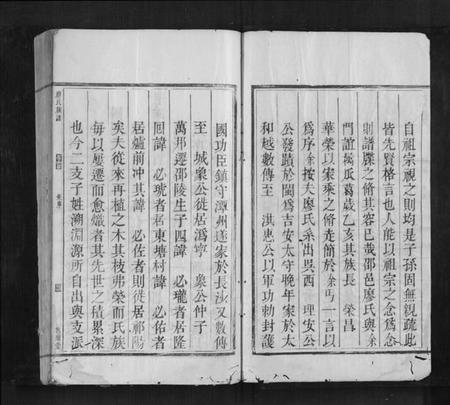 自祖宗視之則均是子孫固無親疏此
皆先賢格言也人能以祖宗之念為念
則譜牒之脩其容已哉邵邑廖氏與余
門誼揭瓜葛歲乙亥其族長 榮昌
華榮以家乘之脩走簡於余丐一言以
為序余按夫廖氏系出吳西 理安公
公發蹟於閩為吉安太守晚年家於太
和越數傳至 洪惠公以軍功勅封護
國功臣鎮守潭州遂家於長沙又數傳
至 城 公徙居溈寧 公仲子
萬邦遷邵陵生子四諱 必瓏者居隆
回諱 必琥者居東塘村諱 必佑者
居爐前冲其諱 必佐者則徙居祁陽
矣夫從來再植之木其枝弗榮而氏族
每以屢遷而愈熾者其先世之積累深
也今二支子姓溯淵源所自出與支派
廖氏族譜